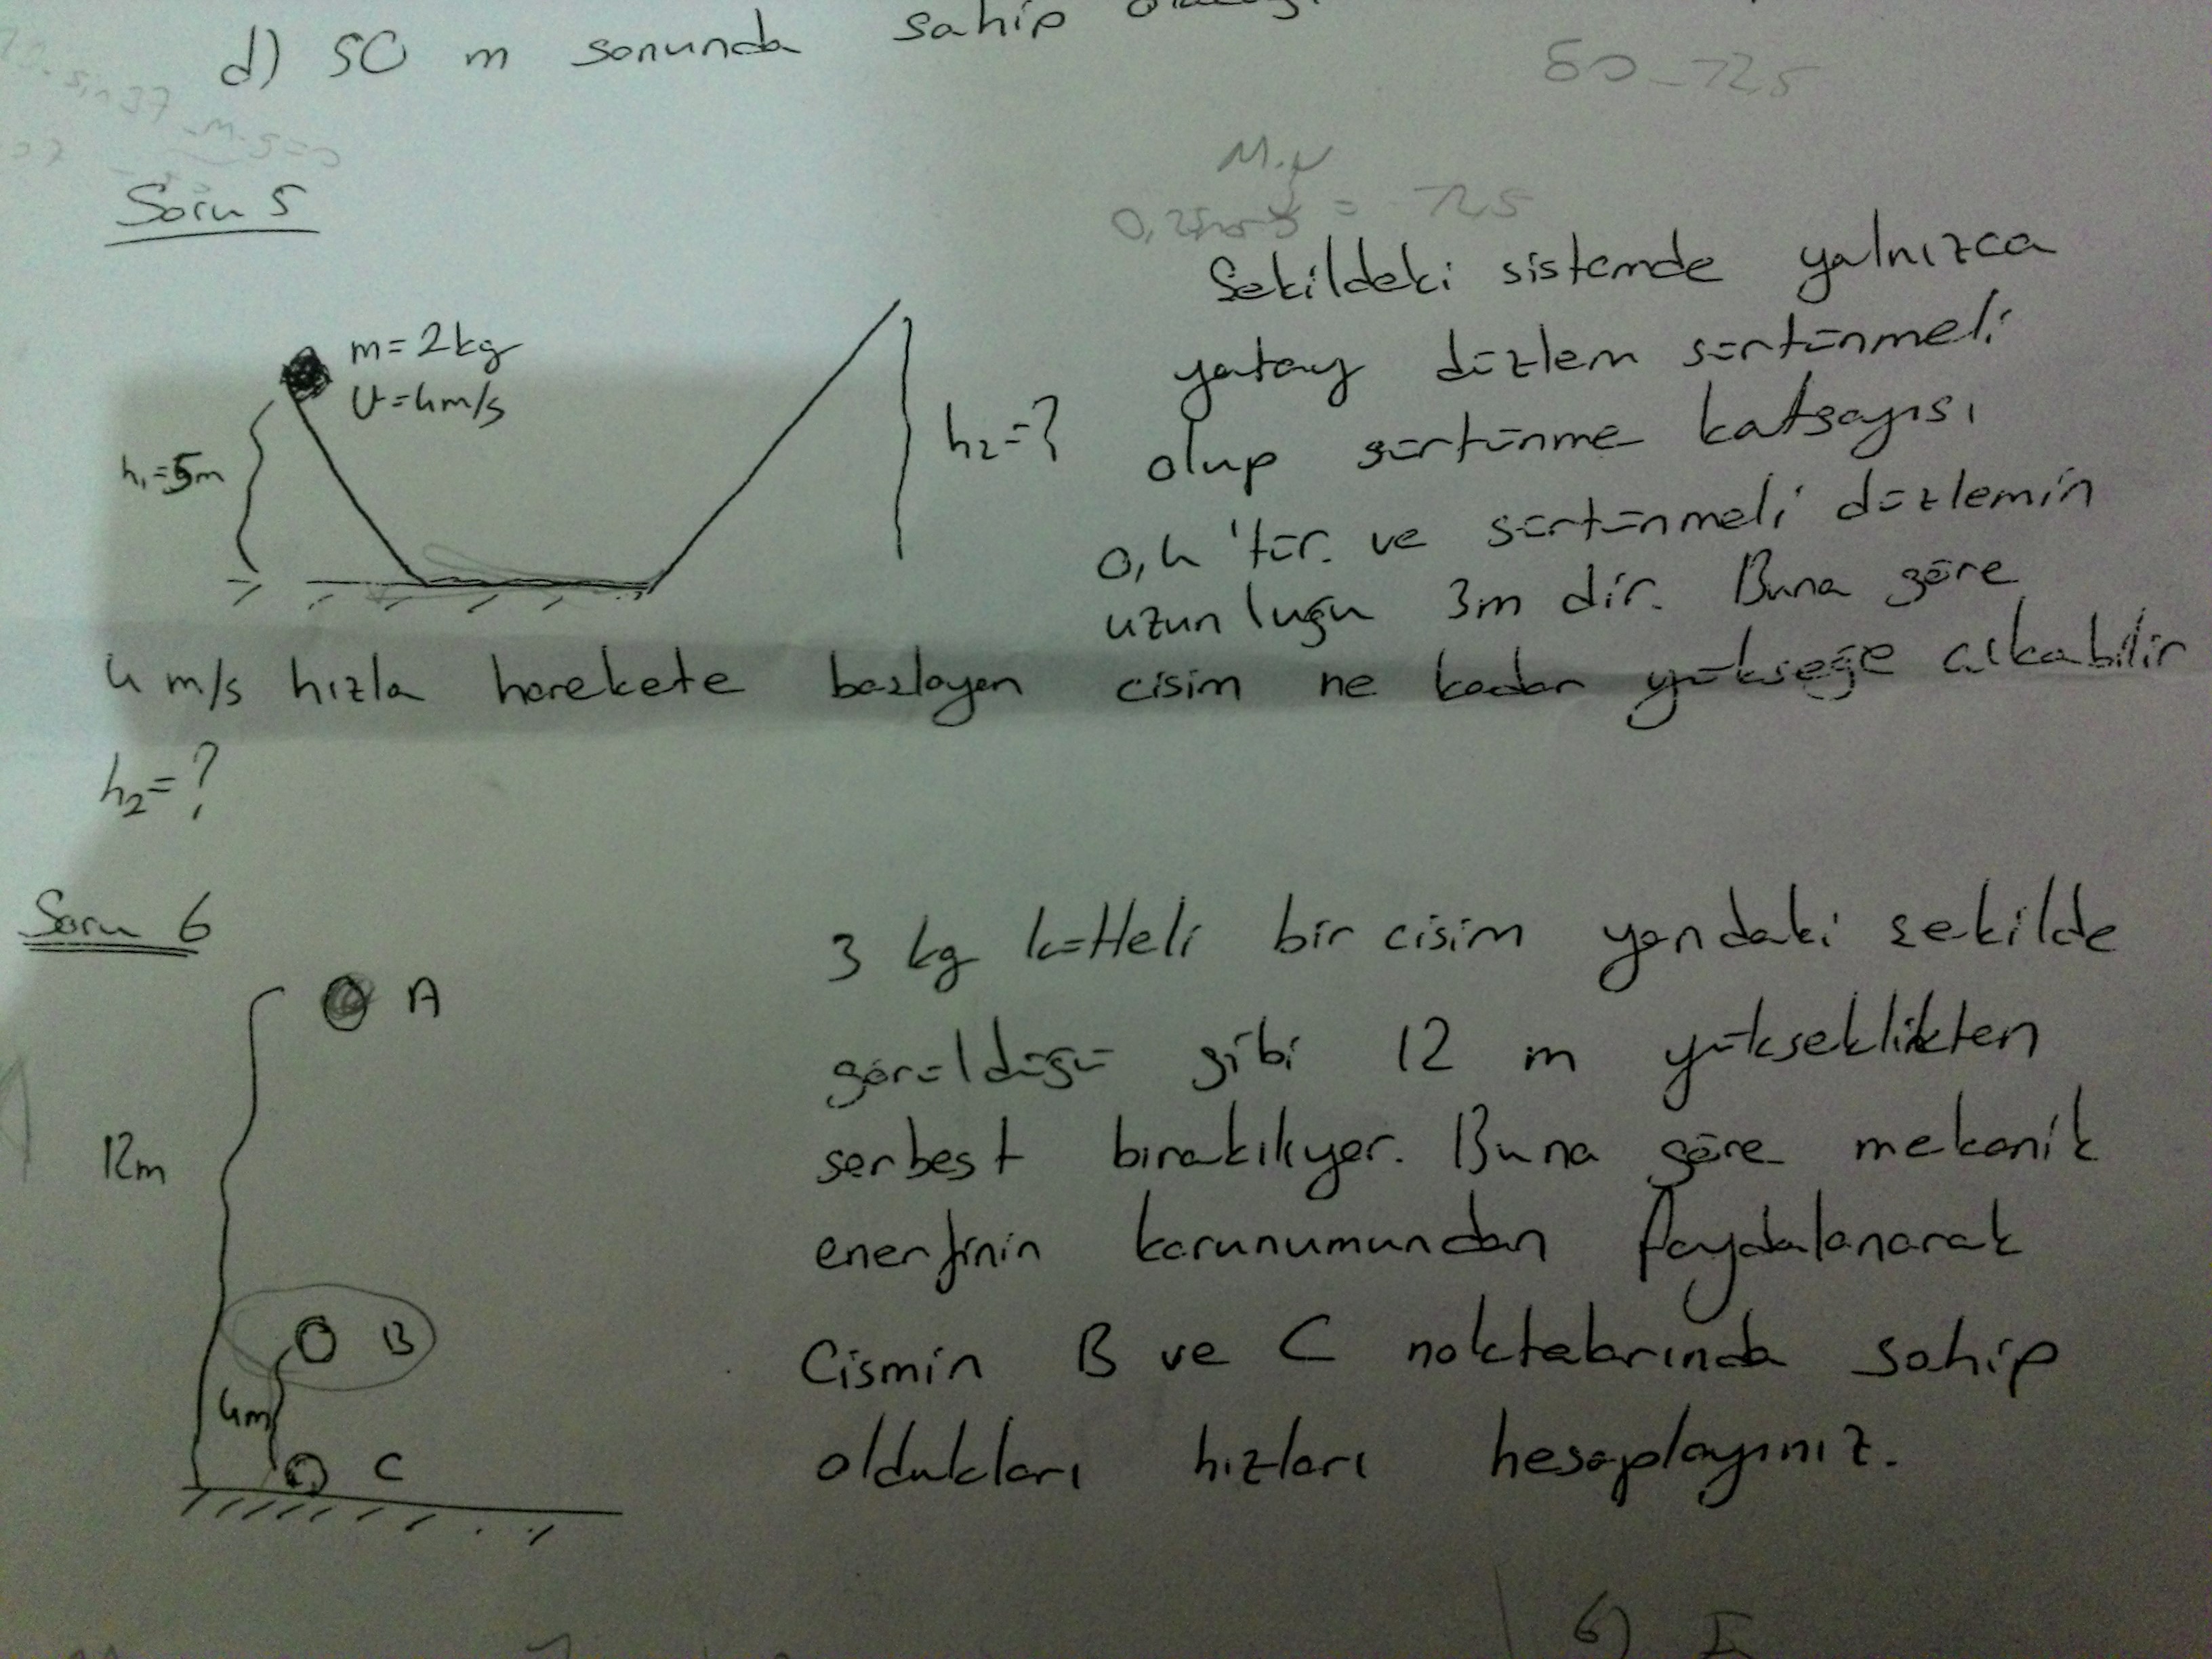 d) 50 m sonunda sahip
sin 37
50-12,5
Soru 5
= 12,5
m=2kg
V=4m/s
h₁=5m
h₂=?
Şekildeki sistemde yalnızca
yatay düzlem sürtünmeli
olup sürtünme katsayısı
0,4 'tür. ve sürtünmeli düzlemin
uzunluğu 3m dir. Buna göre
4 m/s hızla harekete başlayan cisim ne kadar yükseğe çıkabilir
h₂=?
Soru 6
A
12m
B
4m
C
3 kg kütleli bir cisim yandaki şekilde
görüldüğü gibi 12 m yükseklikten
serbest bırakılıyor. Buna göre mekanik
enerjinin korunumundan faydalanarak
Cismin B ve C noktalarında sahip
oldukları hızları hesaplayınız.
6)